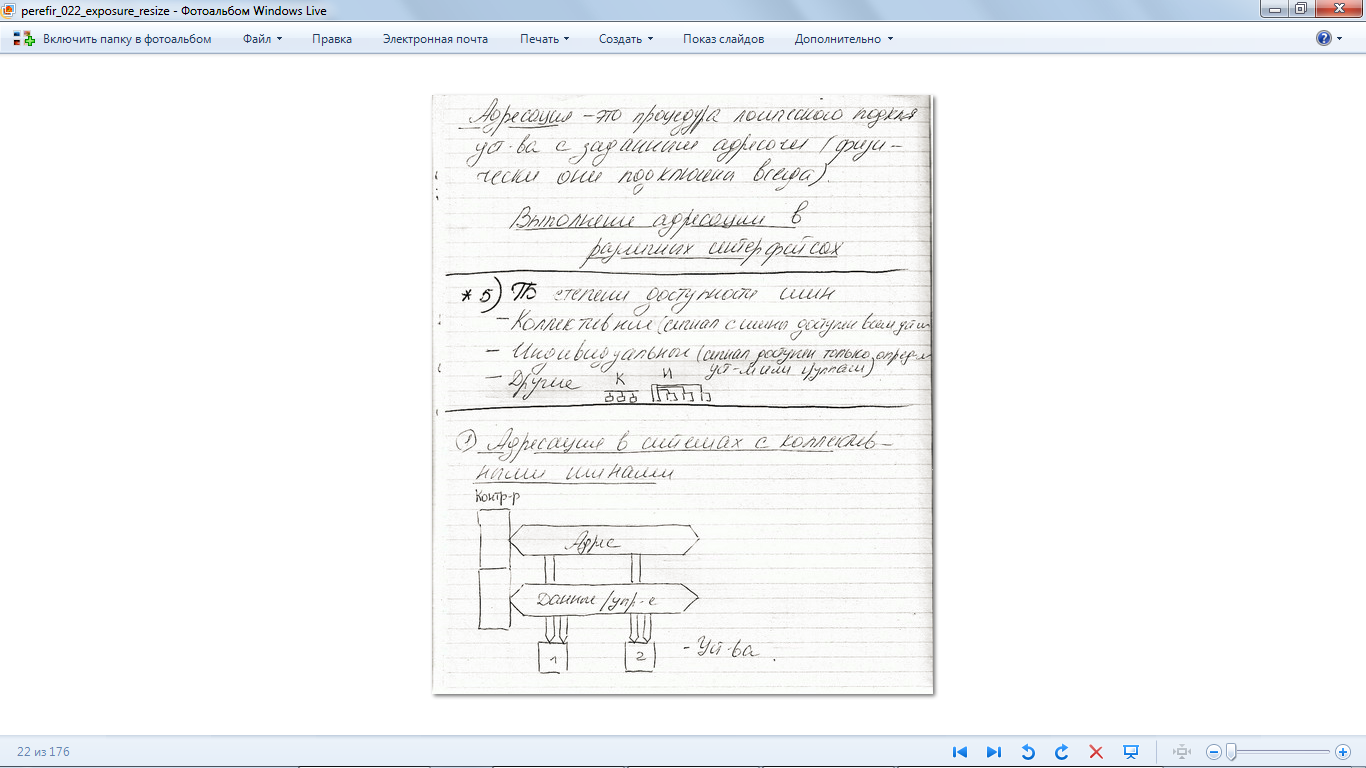 perefir_022_exposure_resize - Фотоальбом Windows Live
Включить папку в фотоальбом Файл Правка Электронная почта Печать Создать Показ слайдов Дополнительно
Адресация – это процедура логического подкл
уст-ва с заданными адресом (физи-
чески они подключены всегда).
Выполнение адресации в
различных интерфейсах
* 5) По степени доступности шин
– Коллективные (сигнал с шины доступен всем
– Индивидуальные (сигнал доступен только опред-м
уст-м или группам)
– Другие К И
① Адресация в системах с коллектив-
ными шинами
Контр-р
Адрес
Данные/упр-е
1 2 - Уст-ва
22 из 176